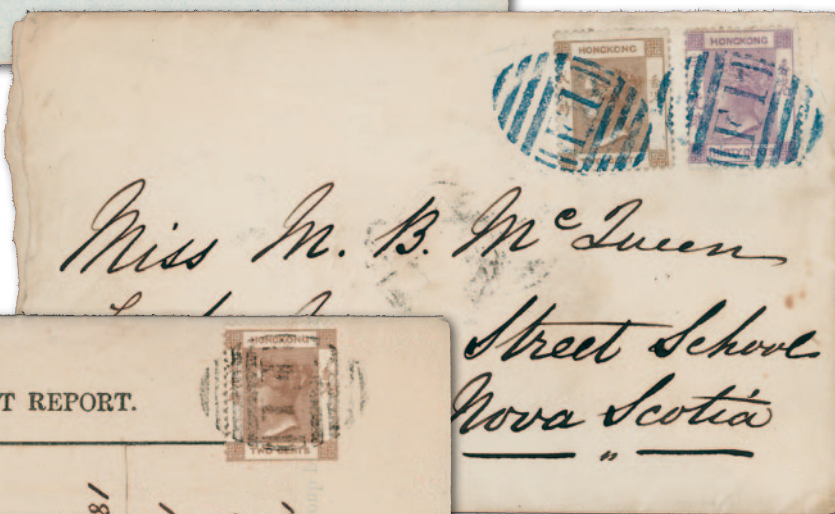 HONGKONG
HONGKONG
F1
F1
Miss M. B. McQueen
Street School
Nova Scotia
"
HONGKONG
F1
TWO CENTS
T REPORT.
81